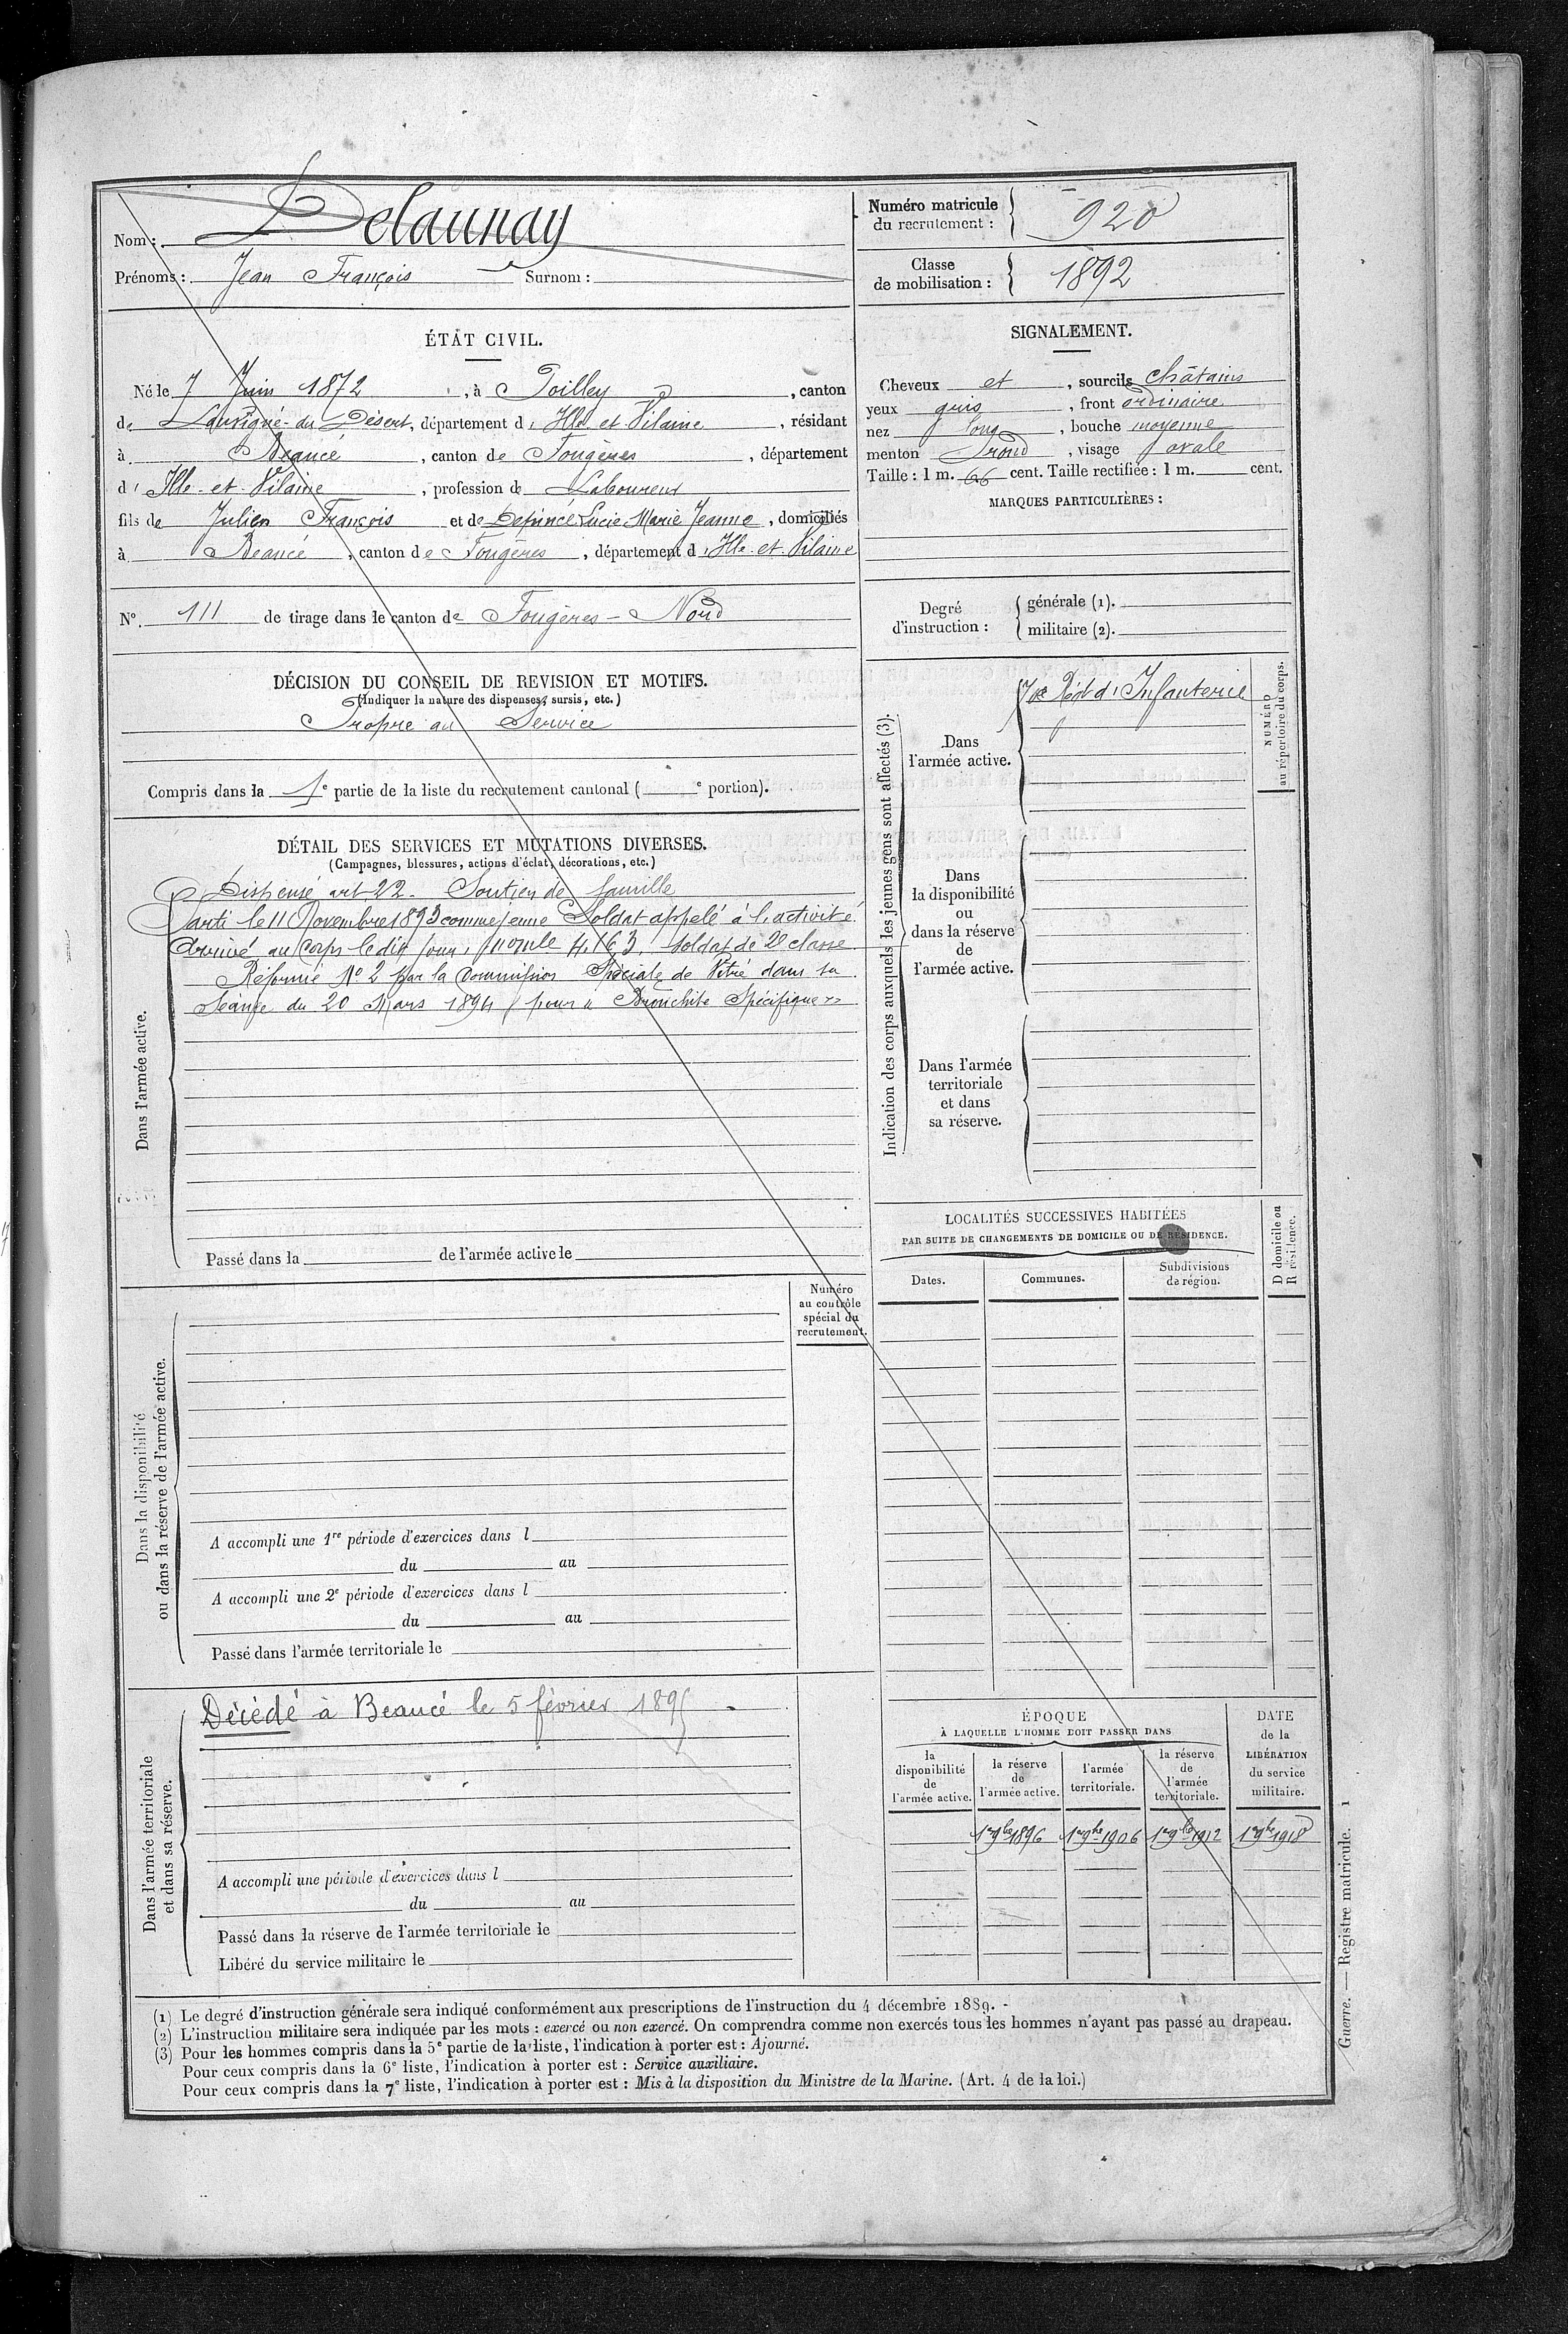 Nom : Delaunay
Prénoms : Jean François Surnom :
Numéro matricule du recrutement : 920
Classe de mobilisation : 1892
ÉTAT CIVIL.
Né le 7 Juin 1872, à Poilley, canton
de Louvigné-du Désert, département d' Ille et Vilaine, résidant
à Beaucé, canton de Fougères, département
d' Ille-et-Vilaine, profession de Laboureur
fils de Julien François et de Lucie Marie Jeanne, domiciliés
à Beaucé, canton de Fougères, département d' Ille-et-Vilaine
N° 111 de tirage dans le canton de Fougères-Nord
DÉCISION DU CONSEIL DE REVISION ET MOTIFS.
(Indiquer la nature des dispenses, sursis, etc.)
Propre au Service
Compris dans la 1e partie de la liste du recrutement cantonal ( e portion).
DÉTAIL DES SERVICES ET MUTATIONS DIVERSES.
(Campagnes, blessures, actions d'éclat, décorations, etc.)
Dans l'armée active.
Dispensé art 22. Soutien de famille
Parti le 11 Novembre 1893 comme jeune Soldat appelé à l'activité.
Arrivé au Corps le dit jour, no mle 4,163, soldat de 2e classe.
Réformé No 2 par la Commission Spéciale de Vitré dans sa
Séance du 20 Mars 1894 pour "Bronchite Spécifique"
Passé dans la de l'armée active le
Numéro
au contrôle
spécial du
recrutement.
Dans la disponibilité
ou dans la réserve de l'armée active.
A accompli une 1re période d'exercices dans l
du au
A accompli une 2e période d'exercices dans l
du au
Passé dans l'armée territoriale le
Dans l'armée territoriale
et dans sa réserve.
Décédé à Beaucé le 5 février 1895
A accompli une période d'exercices dans l
du au
Passé dans la réserve de l'armée territoriale le
Libéré du service militaire le
SIGNALEMENT.
Cheveux et, sourcils châtains
yeux gris, front ordinaire
nez long, bouche moyenne
menton rond, visage ovale
Taille : 1 m. 66 cent. Taille rectifiée : 1 m. cent.
MARQUES PARTICULIÈRES :
Degré d'instruction :
générale (1).
militaire (2).
Indication des corps auxquels les jeunes gens sont affectés (3).
NUMÉRO
au répertoire du corps.
Dans
l'armée active.
70e Régt d'Infanterie
Dans
la disponibilité
ou
dans la réserve
de
l'armée active.
Dans l'armée
territoriale
et dans
sa réserve.
LOCALITÉS SUCCESSIVES HABITÉES
PAR SUITE DE CHANGEMENTS DE DOMICILE OU DE RÉSIDENCE.
D domicile ou
R résidence.
Dates. Communes. Subdivisions
de région.
ÉPOQUE
À LAQUELLE L'HOMME DOIT PASSER DANS
la
disponibilité
de
l'armée active.
la réserve
de
l'armée active.
l'armée
territoriale.
la réserve
de
l'armée
territoriale.
DATE
de la
LIBÉRATION
du service
militaire.
1er 9bre 1896 1er 9bre 1906 1er 9bre 1912 1er 9bre 1918
(1) Le degré d'instruction générale sera indiqué conformément aux prescriptions de l'instruction du 4 décembre 1889.
(2) L'instruction militaire sera indiquée par les mots : exercé ou non exercé. On comprendra comme non exercés tous les hommes n'ayant pas passé au drapeau.
(3) Pour les hommes compris dans la 5e partie de la liste, l'indication à porter est : Ajourné.
Pour ceux compris dans la 6e liste, l'indication à porter est : Service auxiliaire.
Pour ceux compris dans la 7e liste, l'indication à porter est : Mis à la disposition du Ministre de la Marine. (Art. 4 de la loi.)
Guerre. — Registre matricule. 1